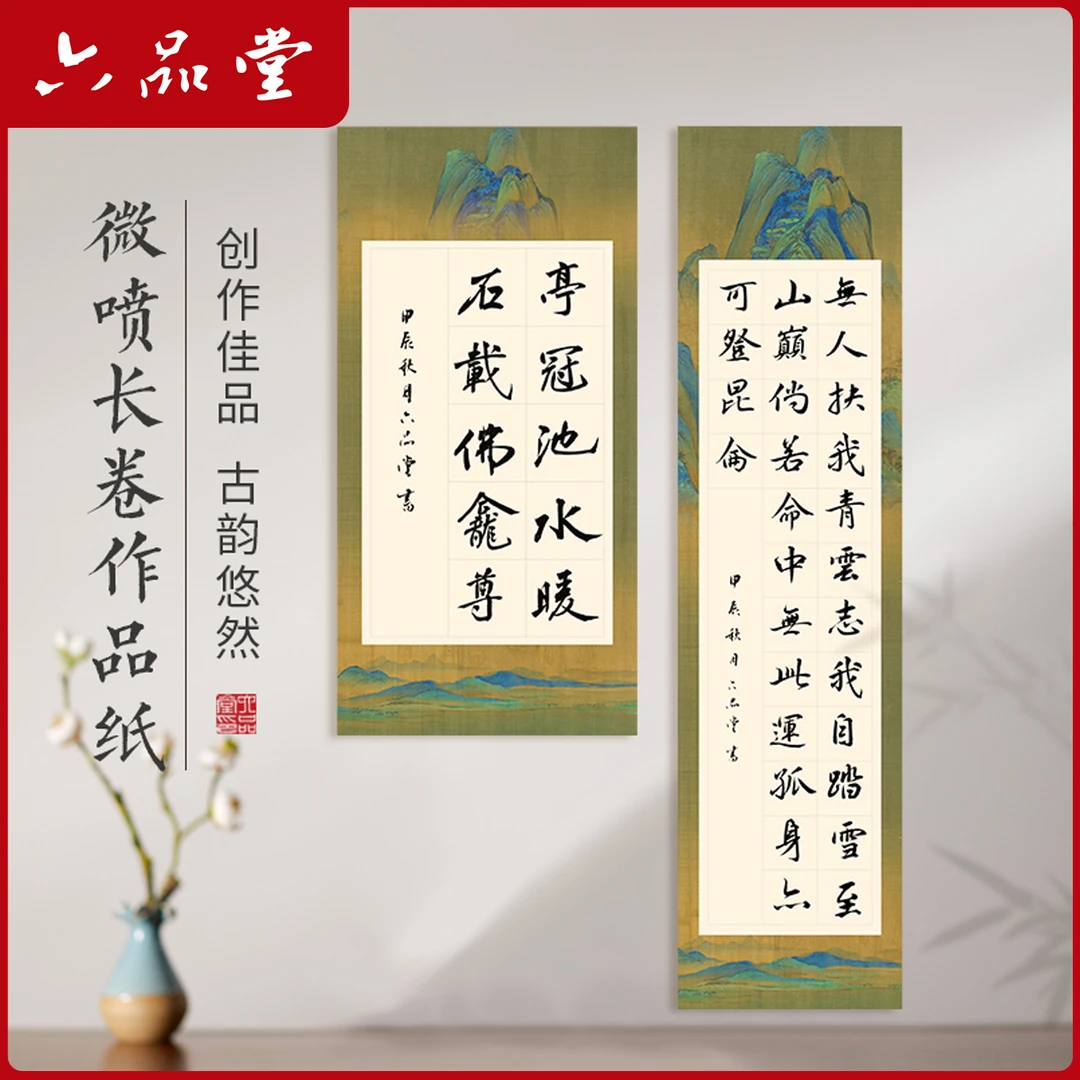 六品堂
微喷长卷作品纸
创作佳品 古韵悠然
六品堂印
亭冠池水暖
石載佛龕尊
甲辰秋月六品堂書
無人扶我青雲志我自踏雪至
山巔倘若命中無此運孤身亦
可登昆侖
甲辰秋月六品堂書